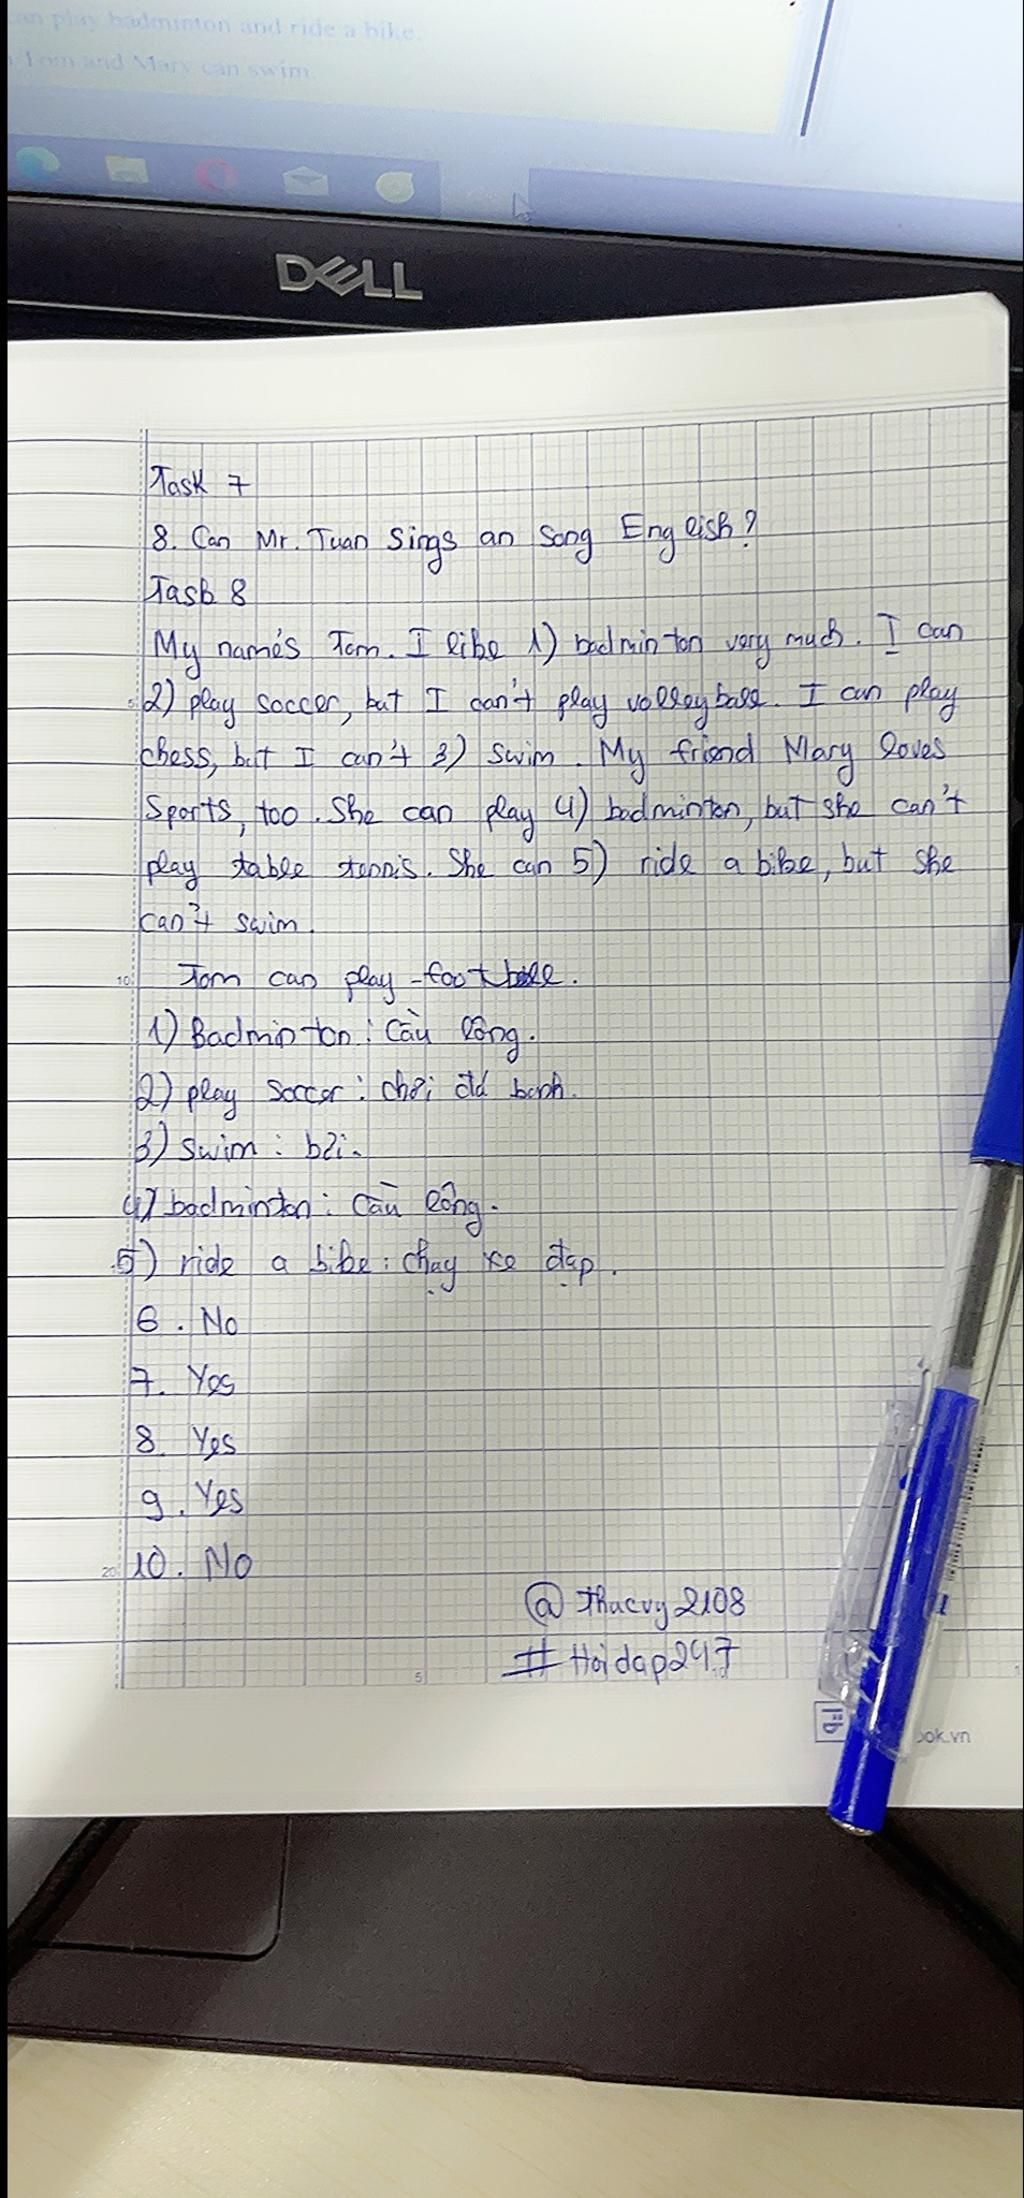 can play badminton and ride a bike.
Tom and Mary can swim.
DELL
Task 7
8. Can Mr. Tuan Sings an Song English?
Task 8
My name's Tom. I like 1) badminton very much. I can
2) play soccer, but I can't play volleyball. I can play
chess, but I can't 3) swim. My friend Mary loves
Sports, too. She can play 4) badminton, but she can't
play table tennis. She can 5) ride a bike, but she
can't swim.
Tom can play football.
1) Badminton: Cầu lông.
2) play soccer: chơi đá banh.
3) swim: bơi.
4) badminton: Cầu lông.
5) ride a bike: chạy xe đạp.
6. No
7. Yes
8. Yes
9. Yes
10. No
@Thucvy2108
#Hoidap247
ook.vn